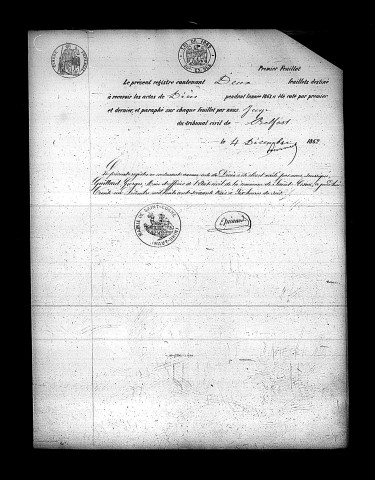 Premier Feuillet
Le présent registre contenant Deux feuillets destiné
à recevoir les actes de Décès pendant l'année 1863 a été coté par premier
et dernier, et paraphé sur chaque feuillet par nous, Juge
du tribunal civil de Belfort
le 4 Décembre 1862
Le présent registre ne contenant aucun acte de Décès a été clos et arrêté par nous soussigné
Maire officier de l'état civil de la commune de
Trente un Décembre mil huit cent soixante trois à six heures du soir
MAIRIE DE SAINT-COSME